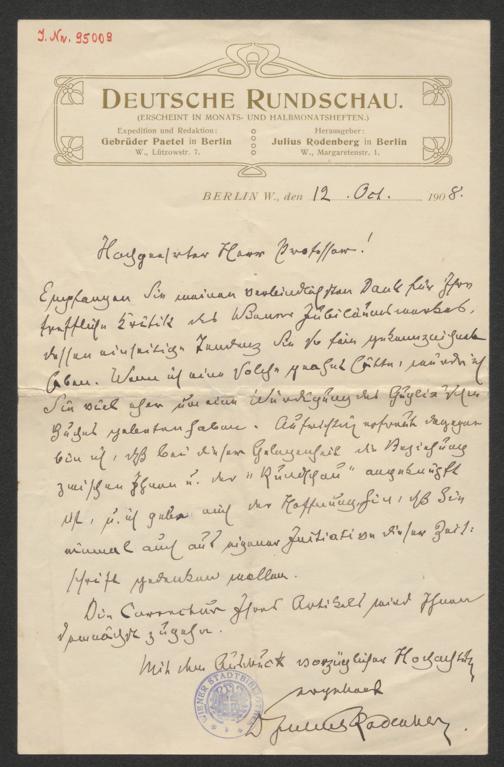 J. Nr. 95009
DEUTSCHE RUNDSCHAU.
(ERSCHEINT IN MONATS- UND HALBMONATSHEFTEN.)
Expedition und Redaktion:
Gebrüder Paetel in Berlin
W., Lützowstr. 7.
Herausgeber:
Julius Rodenberg in Berlin
W., Margaretenstr. 1.
BERLIN W., den 12. Oct. 1908.
Hochgeehrter Herr Professor!
Empfangen Sie meinen verbindlichsten Dank für Ihre
treffliche Kritik des Wiener Jubiläumswerkes,
dessen einseitige Tendenz Sie so fein gekennzeichnet
haben. Wenn ich eine solche geahnt hätte, würde ich
Sie viel eher um eine Würdigung des
Buches gebeten haben. Aufrichtig erfreut dagegen
bin ich, daß bei dieser Gelegenheit die Beziehung
zwischen Ihnen u. der "Rundschau" angeknüpft
ist, u. ich gebe mich der Hoffnung hin, daß Sie
einmal auch aus eigener Initiative dieser Zeit-
schrift gedenken wollen.
Die Correctur Ihres Artikels wird Ihnen
demnächst zugehn.
Mit dem Ausdruck vorzüglicher Hochachtung
ergebenst
Dr Julius Rodenberg.
WIENER STADTBIBLIOTHEK